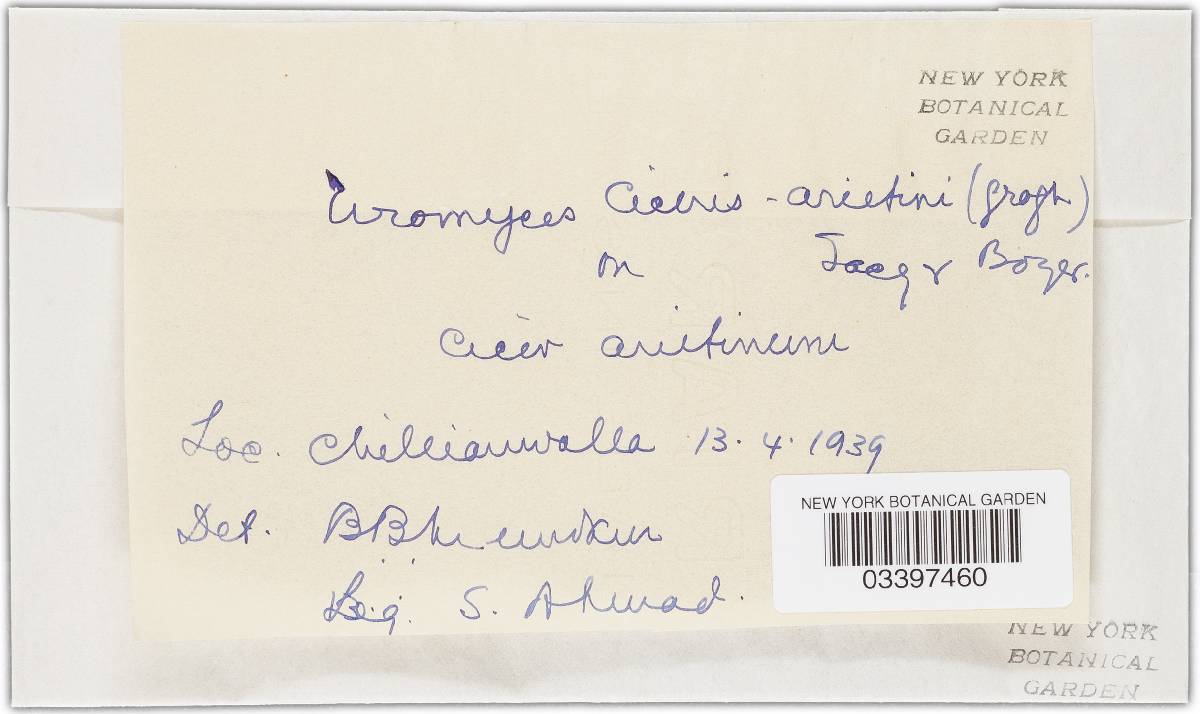 NEW YORK
BOTANICAL
GARDEN
Uromyces Ciceris-arietini (Grogn)
on Jacz & Boyer.
Cicer arietinum
Loc. Chillianwalla 13.4.1939
Det. B B
Leg. S. Ahmad.
NEW YORK BOTANICAL GARDEN
03397460
NEW YORK
BOTANICAL
GARDEN